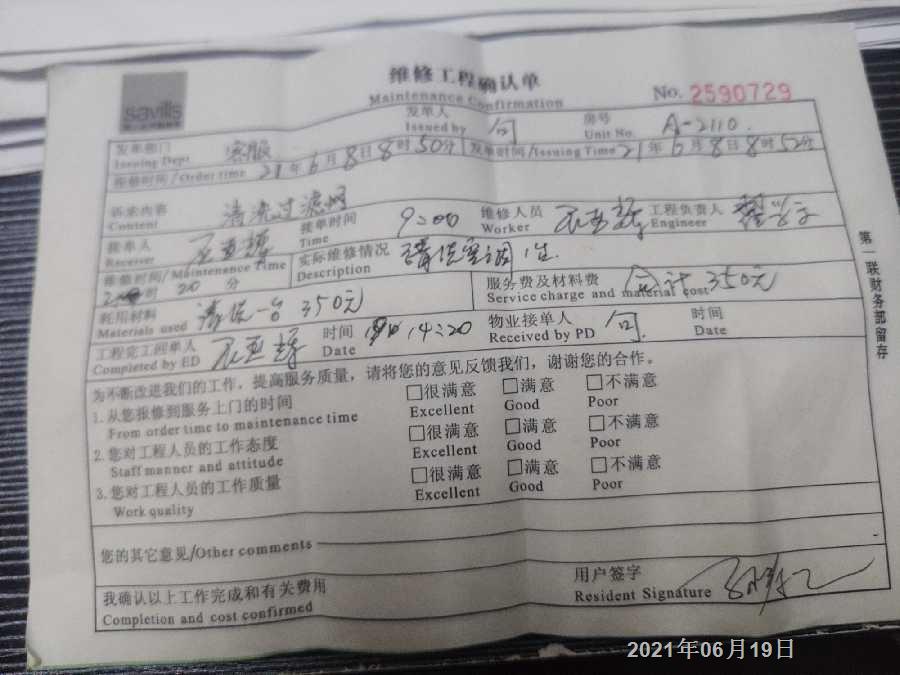 savills
维修工程确认单
Maintenance Confirmation
No. 2590729
发单部门 客服 发单人 房号
Issuing Dept Issued by Unit No. A-2110.
维修时间/Order time 21年6月8日8时50分 发单时间/Issuing Time 21年6月8日8时52分
诉求内容 清洗过滤网 接单时间 9:00 维修人员 工程负责人
Content Time Worker Engineer
接单人
Receiver
维修时间/Maintenance Time 实际维修情况
时20分 Description 清洗空调1台
耗用材料 清洗一台350元 服务费及材料费 合计350元
Materials used Service charge and material cost
工程完工回单人 时间 14:20 物业接单人 时间
Completed by ED Date Received by PD Date
为不断改进我们的工作，提高服务质量，请将您的意见反馈我们，谢谢您的合作。
1.从您报修到服务上门的时间 □很满意 □满意 □不满意
From order time to maintenance time Excellent Good Poor
2.您对工程人员的工作态度 □很满意 □满意 □不满意
Staff manner and attitude Excellent Good Poor
3.您对工程人员的工作质量 □很满意 □满意 □不满意
Work quality Excellent Good Poor
您的其它意见/Other comments
我确认以上工作完成和有关费用 用户签字
Completion and cost confirmed Resident Signature
第一联财务部留存
2021年06月19日